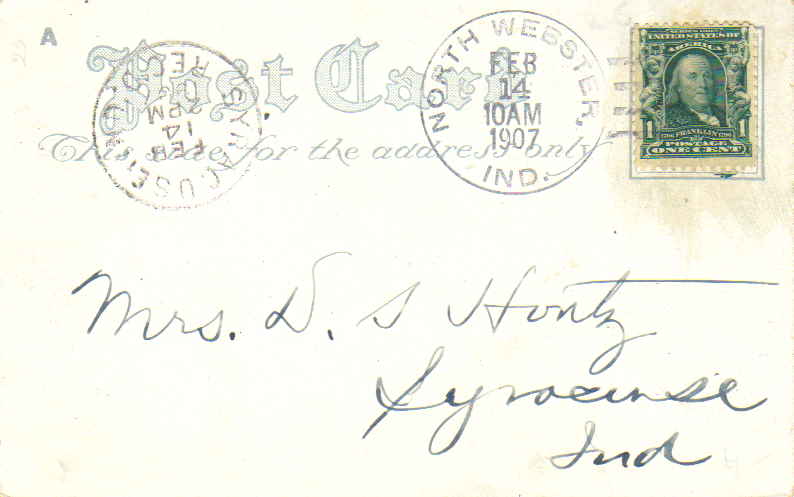 A
Post Card
This side for the address only
NORTH WEBSTER, IND.
FEB
14
10AM
1907
SYRACUSE, IND.
FEB
14
2PM
REC'D
SERIES 1902
UNITED STATES OF
AMERICA
1 FRANKLIN 1
POSTAGE
ONE CENT
Mrs. D. S Hontz
Syracuse
Ind